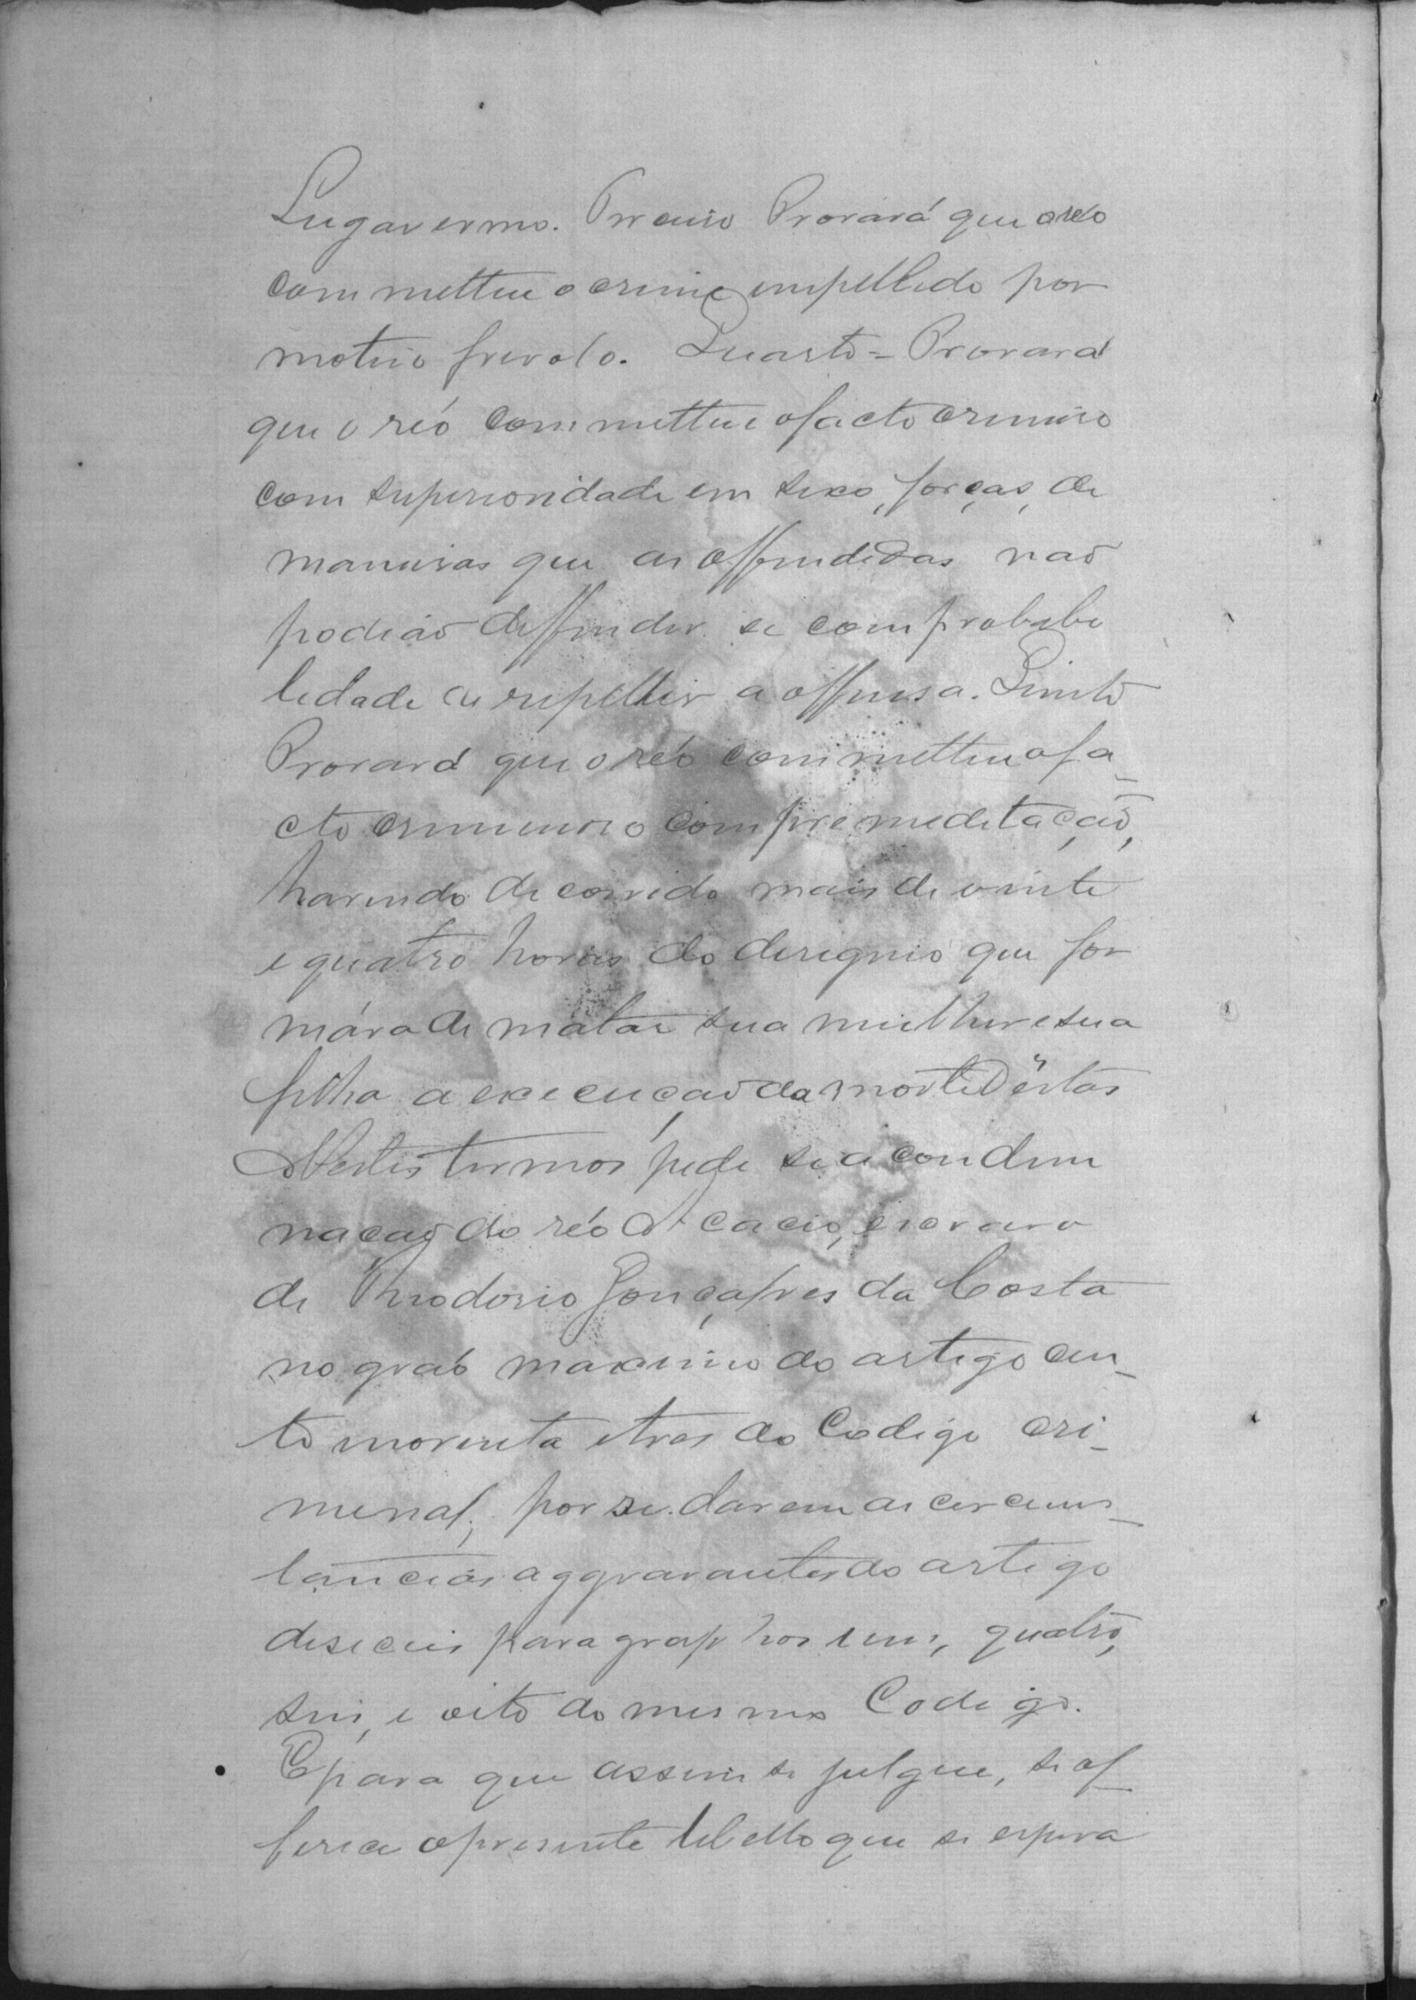 Lugar ermo. Terceiro Provará que o réo
commetteu o crime impellido por
motivo frivolo. Quarto = Provará
que o réo commetteu o facto crimino
com superioridade em sexo, forças, de
maneiras que as offendidas não
podião deffender se com probabi
lidade de repellir a offensa. Quinto
Provará que o réo commetteu o fa-
cto criminoso com premeditação,
havendo decorrido mais de vinte
e quatro horas do designio que for
mára de matar sua mulher e sua
filha a execução da morte d'estas
Nestes termos pede se a condem
nação do réo Acacio, escravo
de Theodosio Gonçalves da Costa
no gráo maximo do artigo cen-
to noventa e tres do Codigo cri-
minal, por se darem as circums-
tancias aggravantes do artigo
deseceis paragraphos um, quatro,
seis, e oito do mesmo Codigo.
E para que assim se julgue, se of-
ferece o presente libello que se espera